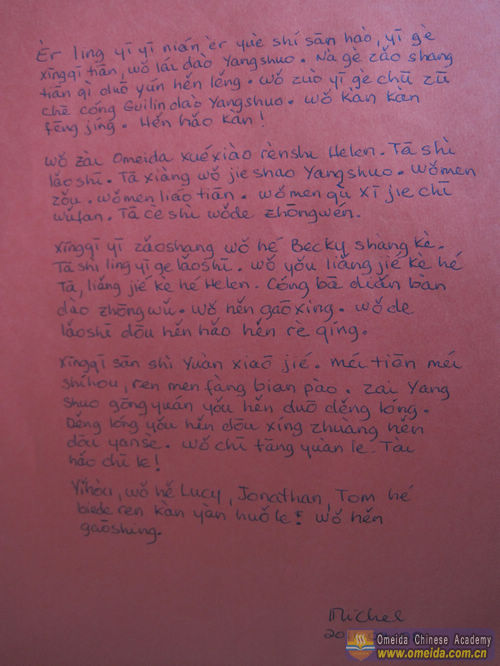 Èr líng yī yī nián èr yuè shí sān hào, yī gè
xīngqī tiān, wǒ lái dào Yangshuo. Nà gè zǎo shang
tiān qì duō yún hěn lěng. Wǒ zuò yī ge chū zū
chē cóng Guilin dào Yangshuo. Wǒ kàn kàn
fēng jǐng. Hěn hǎo kàn!
Wǒ zài Omeida xuéxiào rènshi Helen. Tā shì
lǎoshī. Tā xiàng wǒ jie shao Yangshuo. Wǒmen
zǒu. Wǒmen liáo tiān. Wǒmen qù xī jie chī
wǔfan. Tā cè shì wǒde zhōngwén.
Xīngqī yī zǎoshang wǒ hé Becky shàng kè.
Tā shì ling yī ge lǎoshī. Wǒ yǒu liǎng jié kè hé
Tā, liǎng jié kè hé Helen. Cóng bā diǎn bàn
dào zhōngwǔ. Wǒ hěn gāoxìng. Wǒ de
lǎoshī dōu hěn hǎo hěn rè qíng.
Xīngqī sān shì Yuàn xiāo jié. Měi tiān měi
shíhou, ren men fàng bian pào. Zai Yang
shuo gōng yuán yǒu hěn duō děng lóng.
Děng lóng yǒu hěn dōu xíng zhuàng hěn
dōu yanse. Wǒ chī tāng yuàn le. Tài
hǎo chī le!
Yǐhòu, wǒ hé Lucy, Jonathan, Tom hé
biede ren kàn yàn huǒ le! Wǒ hěn
gāoshing.
Michel
Omeida Chinese Academy
www.omeida.com.cn